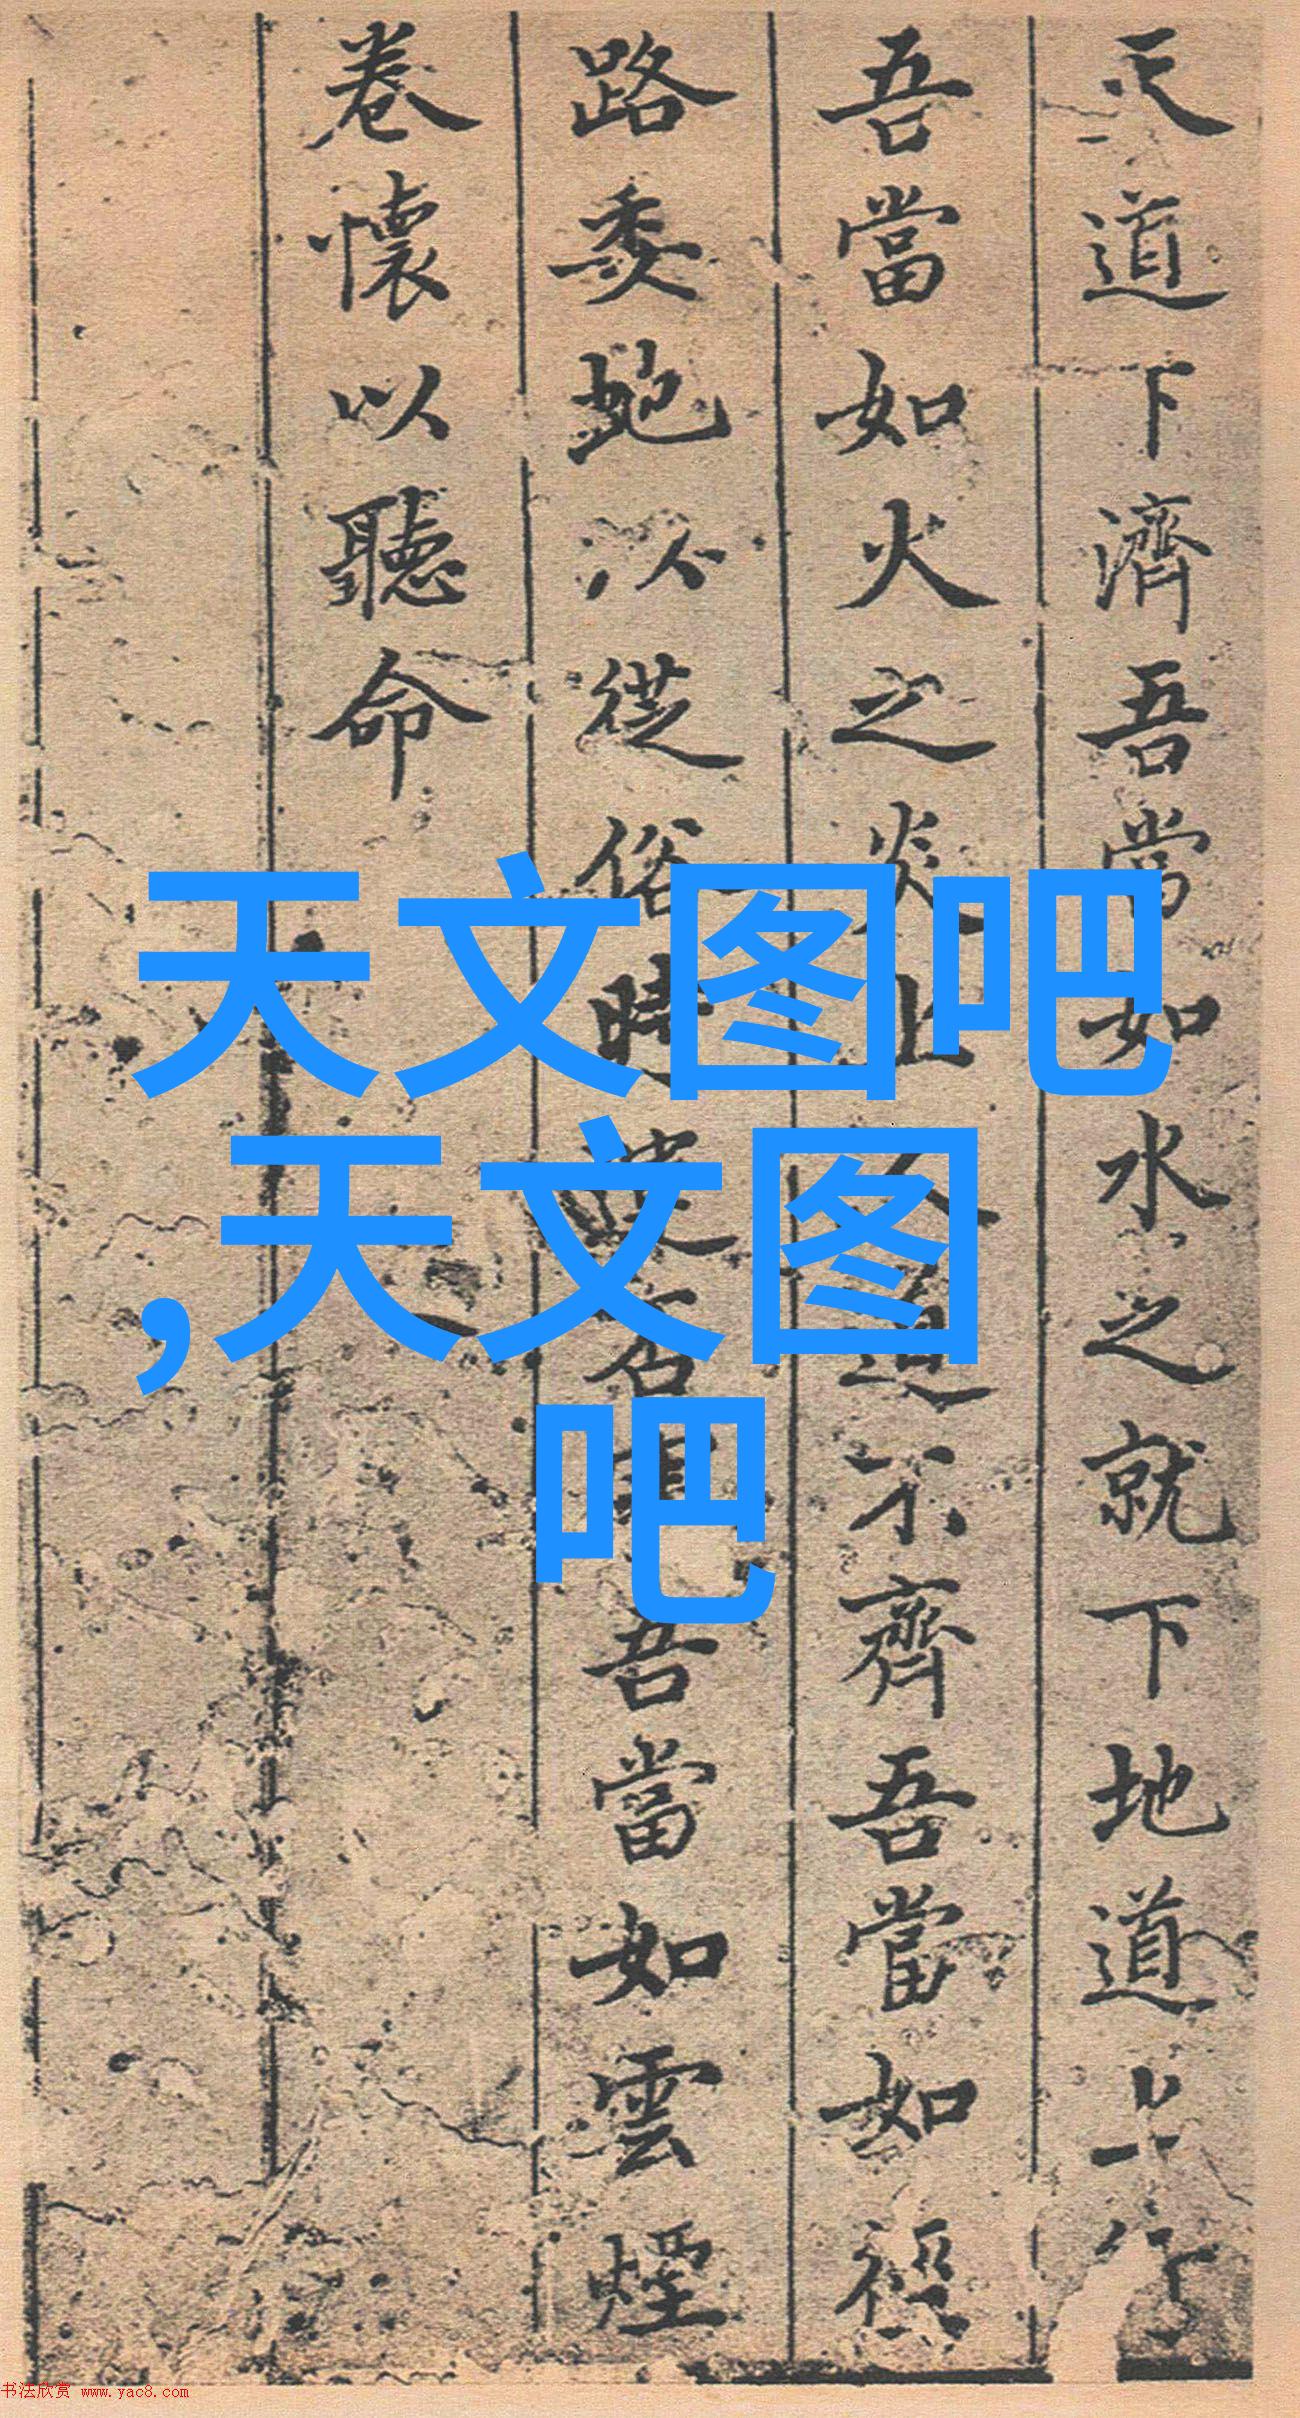 天道下濟吾當如水之就下地道上行
吾當如火之炎上人道不齊吾當如徑
路委蛇以從俗時世名吾當如雲煙
卷懷以聽命
天文图吧
,天文图
吧
书法欣赏 www.yac8.com